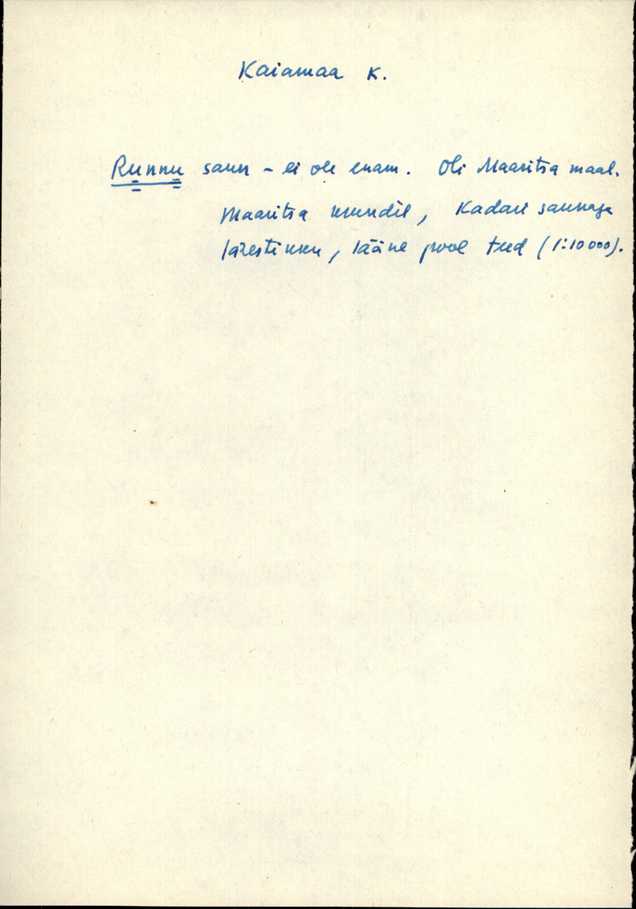 Kaiamaa K.
Runnu saun – ei ole enam. Oli Maaritsa maal.
Maaritsa krundil, Kadari saunaga
kõrestikku, lääne pool teed (1:10 000).